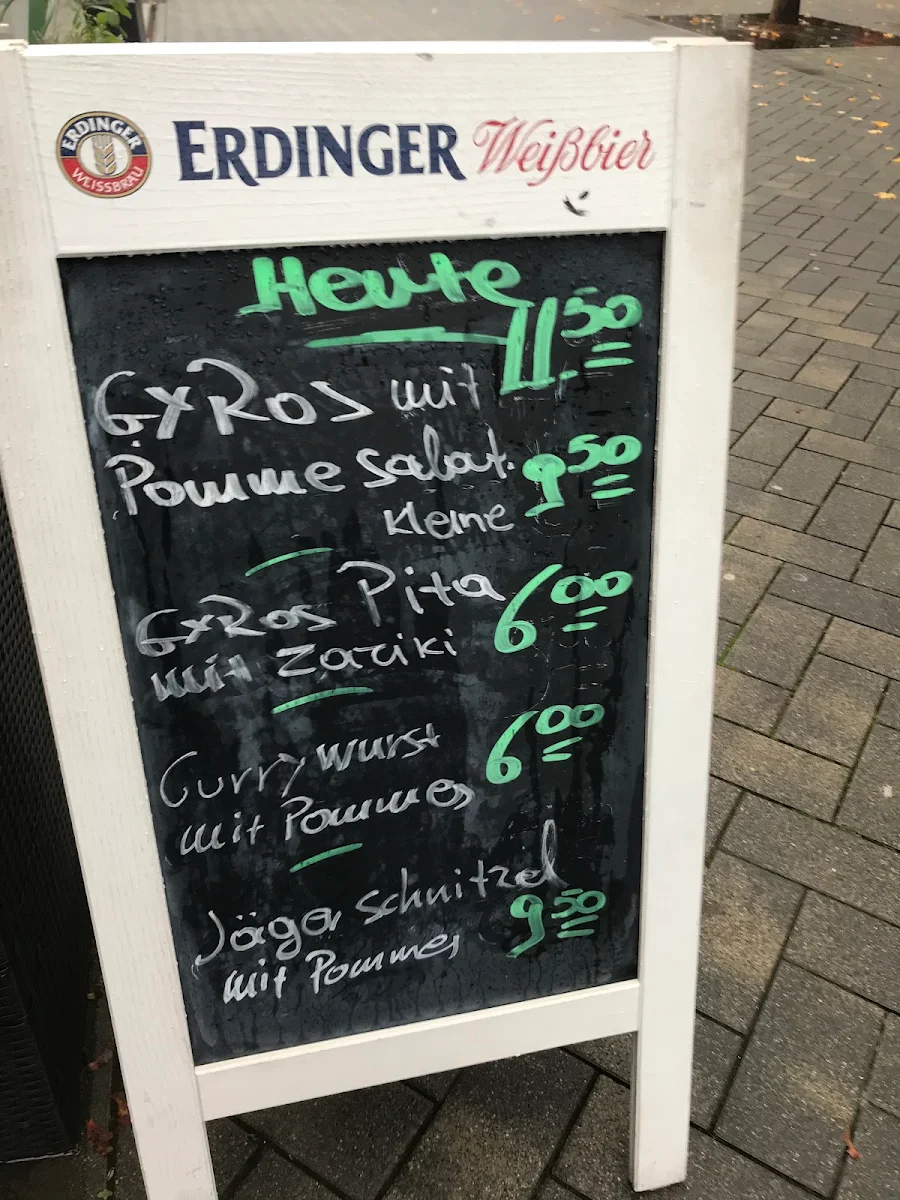 ERDINGER
WEISSBRÄU
ERDINGER Weißbier
Heute
Gyros mit 11.50
Pomme Salat. 9 50
kleine
Gyros Pita 6 00
mit Zaziki
Curry wurst 6 00
mit Pommes
Jäger schnitzel
mit Pommes 9 50